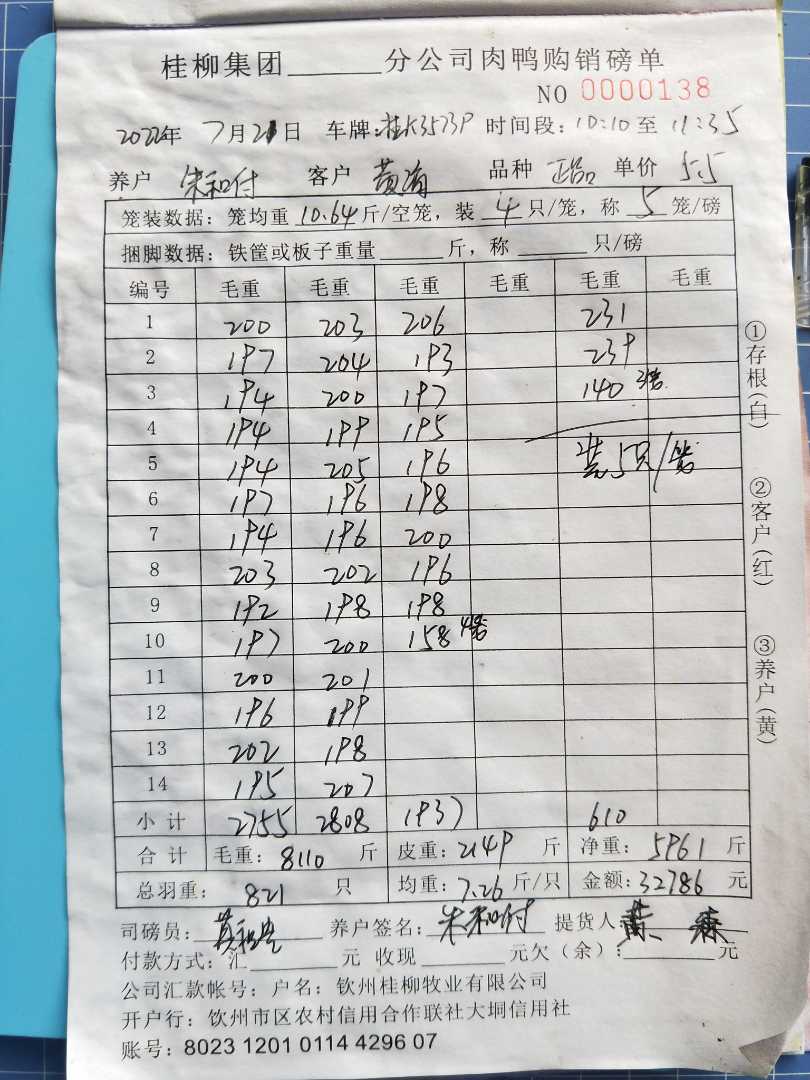 桂柳集团______分公司肉鸭购销磅单
NO 0000138
2022年 7月21日 车牌:桂K3573P 时间段:10:10至11:35
养户 朱和付 客户 黄 品种 正品 单价 5.5
笼装数据:笼均重10.64斤/空笼,装4只/笼,称5笼/磅
捆脚数据:铁筐或板子重量______斤,称______只/磅
编号 毛重 毛重 毛重 毛重 毛重 毛重
1 200 203 206 231
2 197 204 193 239
3 194 200 197 140 3笼
4 194 199 195
5 194 205 196 装5只/笼
6 197 196 198
7 194 196 200
8 203 202 196
9 192 198 198
10 197 200 158 4笼
11 200 201
12 196 199
13 202 198
14 195 207
小计 2755 2808 1937 610
合计 毛重:8110 斤 皮重:2149 斤 净重:5961 斤
总羽重:821 只 均重:7.26 斤/只 金额:32786 元
司磅员: 黄 养户签名:朱和付 提货人:黄
付款方式:汇______元 收现______元欠(余):______元
公司汇款帐号:户名:钦州桂柳牧业有限公司
开户行:钦州市区农村信用合作联社大垌信用社
账号:8023 1201 0114 4296 07
①存根(白)
②客户(红)
③养户(黄)